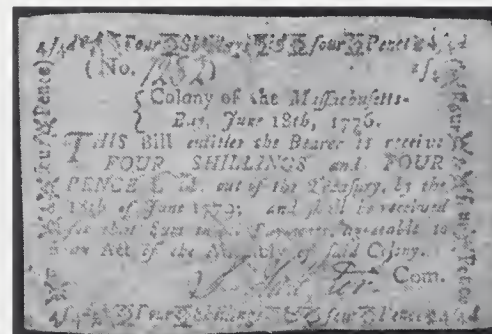 4/4d Four Shillings & four Pence 4/4d
(No. ) 4/4
Colony of the Maſſachuſetts-
Bay, June 18th, 1776.
THIS Bill entitles the Bearer to receive
FOUR SHILLINGS and FOUR
PENCE L. M. out of the Treaſury, by the
18th of June 1779; and ſhall be received
for that Sum in all Payments, agreeable to
an Act of the Aſſembly of ſaid Colony.
Com.
Four Shillings & four Pence 4/4d